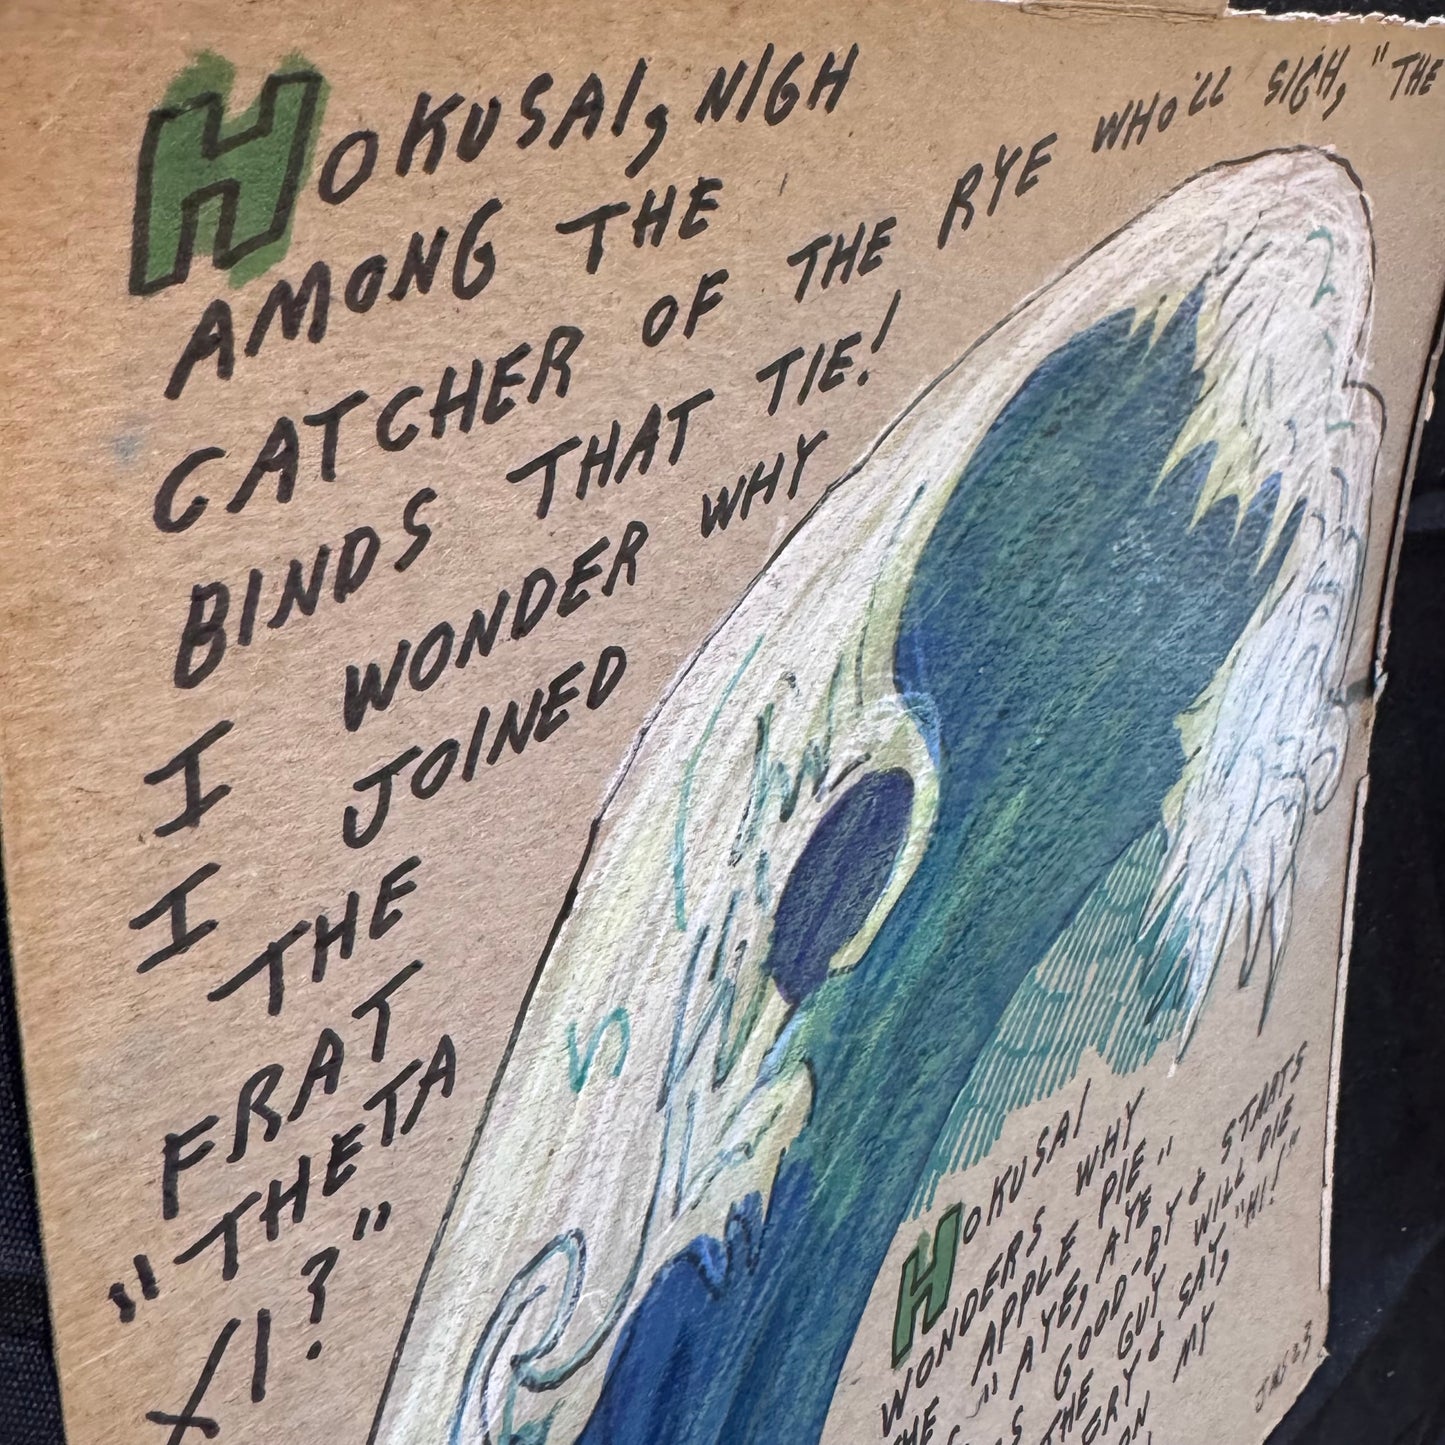 HOKUSAI, NIGH
AMONG THE
CATCHER OF THE RYE WHO'LL SIGH, "THE
BINDS THAT TIE!
I WONDER WHY
I JOINED
THE
FRAT
"THETA
XI?"
HOKUSAI
WONDERS WHY
THE APPLE PIE"
"AYE, AYE & STARTS
GOOD-BY & WILL DIE
THE GUY
CRY & SAY, "HI!"
ON MY
JMS23